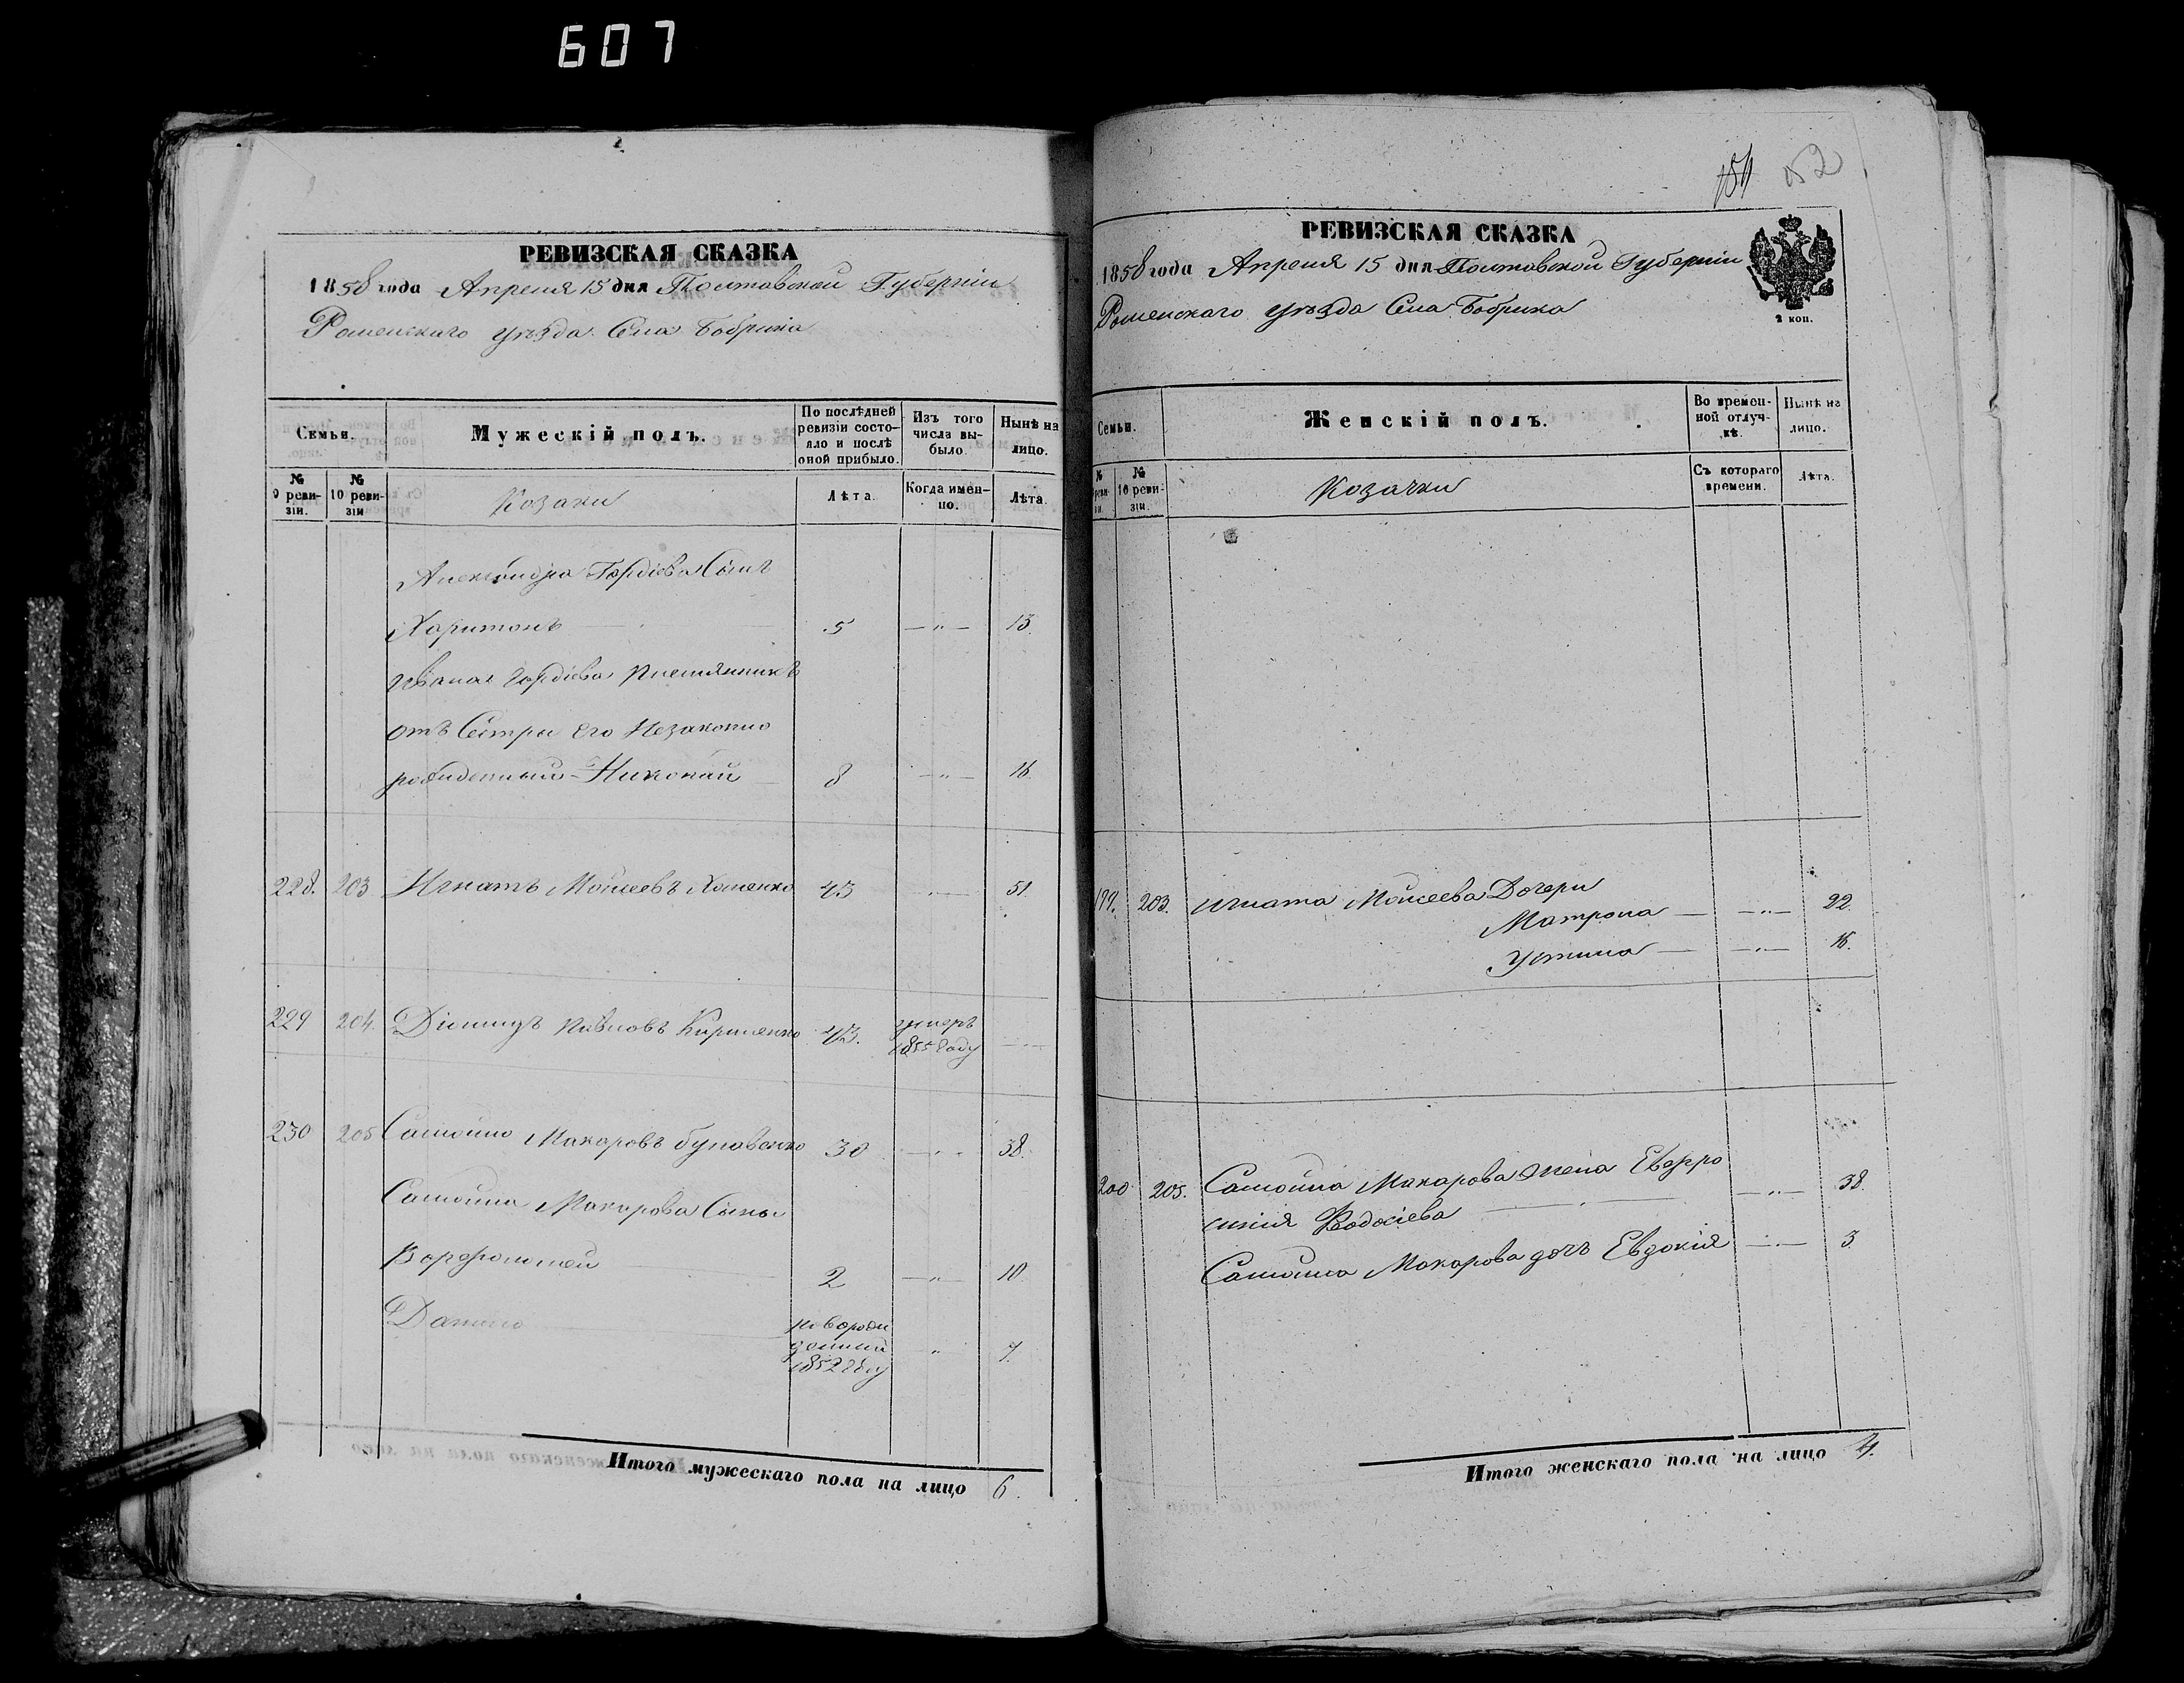 607
РЕВИЗСКАЯ СКАЗКА
1858 года Апреля 15 дня Полтавской Губерніи
Роменскаго уѣзда Села Бобрика
Семьи.
Мужескій полъ.
По послѣдней ревизіи состояло и послѣ оной прибыло.
Изъ того числа выбыло.
Ныне на лицо.
№ 9 ревизіи.
№ 10 ревизіи
Козаки
Лѣта.
Когда именно.
Лѣта.
Александра Гордіева Сынъ
Харитонъ 5 — " — 13.
Ивана Гордіева Племянникъ
отъ Сестры Его Незаконно
рожденный Николай 8 — " — 16
228. 203 Игнатъ Моисеевъ Хоменко 43 51.
229 204. Діомидъ Павловъ Кириленко 43. умеръ 1855 году
230 205 Самойло Макаровъ Буловенко 30 — " — 38.
Самойла Макарова Сыны
Варфоломей 2 — " — 10
Данило новорожденный 1852 году " 7.
Итого мужескаго пола на лицо 6.
151 152
РЕВИЗСКАЯ СКАЗКА
1858 года Апреля 15 дня Полтавской Губерніи
Роменскаго уѣзда Села Бобрика
2 коп.
Семьи.
Женскій полъ.
Во временной отлучкѣ.
Нынѣ на лицо.
№ ревизіи
№ 10 ревизіи.
Козачки
Съ котораго времени.
Лѣта.
199. 203. Игната Моисеева Дочери
Матрона — — " — 22.
Устина — — " — 16.
200 205. Самойла Макарова жена Евфро
синия Федосіева — " — 38
Самойла Макарова дочь Евдокия — " — 3.
Итого женскаго пола на лицо 4.